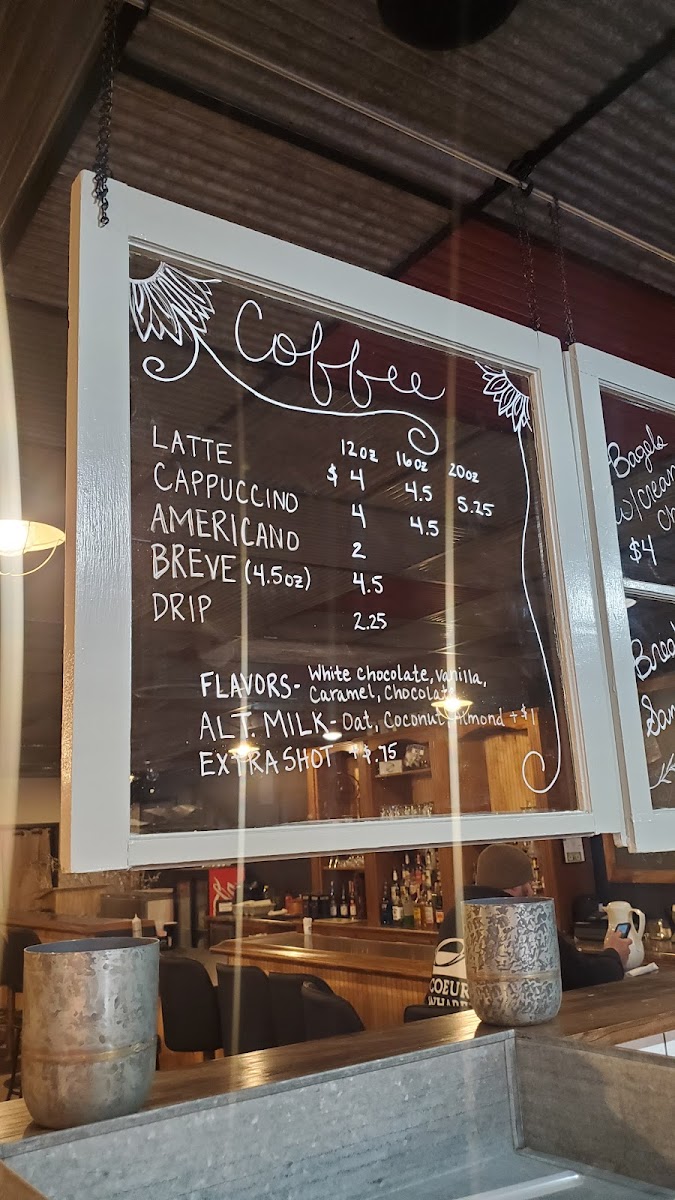 Coffee
12oz 16oz 20oz
LATTE $4 4.5 5.25
CAPPUCCINO 4 4.5
AMERICANO 2
BREVE (4.5oz) 4.5
DRIP 2.25
FLAVORS- White Chocolate, Vanilla,
Caramel, Chocolate
ALT. MILK- Oat, Coconut, Almond +$1
EXTRA SHOT +$.75
Bagels
w/cream
$4
COEUR